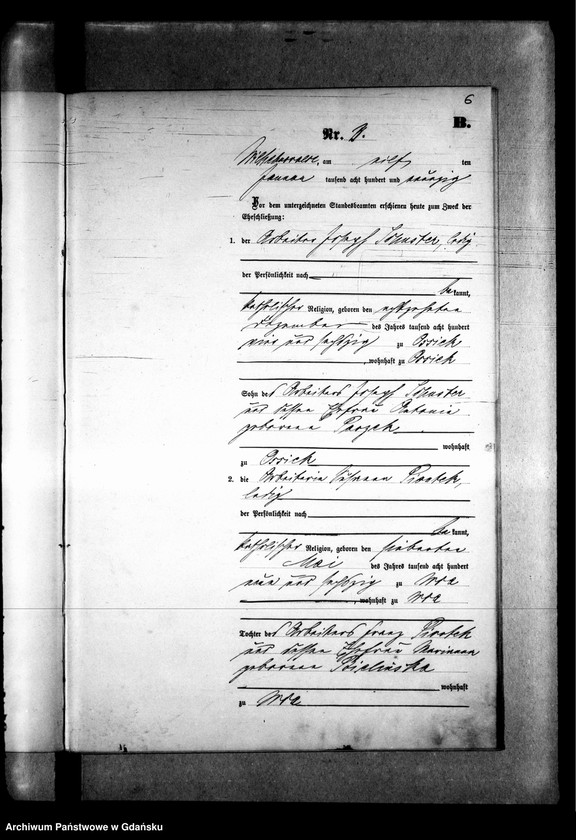 6
B.
Nr. 2.
am elf ten
Januar tausend acht hundert und neunzig
Vor dem unterzeichneten Standesbeamten erschienen heute zum Zweck der
Eheschließung:
1. der Arbeiter Josef Schuster, ledig
der Persönlichkeit nach
be kannt,
katholischer Religion, geboren den achtzehnten
Dezember des Jahres tausend acht hundert
vier und sechzig zu Ossiek
, wohnhaft zu Ossiek
Sohn des Arbeiters Josef Schuster
und dessen Ehefrau Antonie
geborenen
wohnhaft
zu Ossiek
2. die Arbeiterin Piontek,
ledig
der Persönlichkeit nach
be kannt,
katholischer Religion, geboren den siebenten
Mai des Jahres tausend acht hundert
neun und sechzig zu Wda
, wohnhaft zu Wda
Tochter des Arbeiters Franz Piontek
und dessen Ehefrau Marianna
geborenen Bielinska
wohnhaft
zu Wda
Archiwum Państwowe w Gdańsku